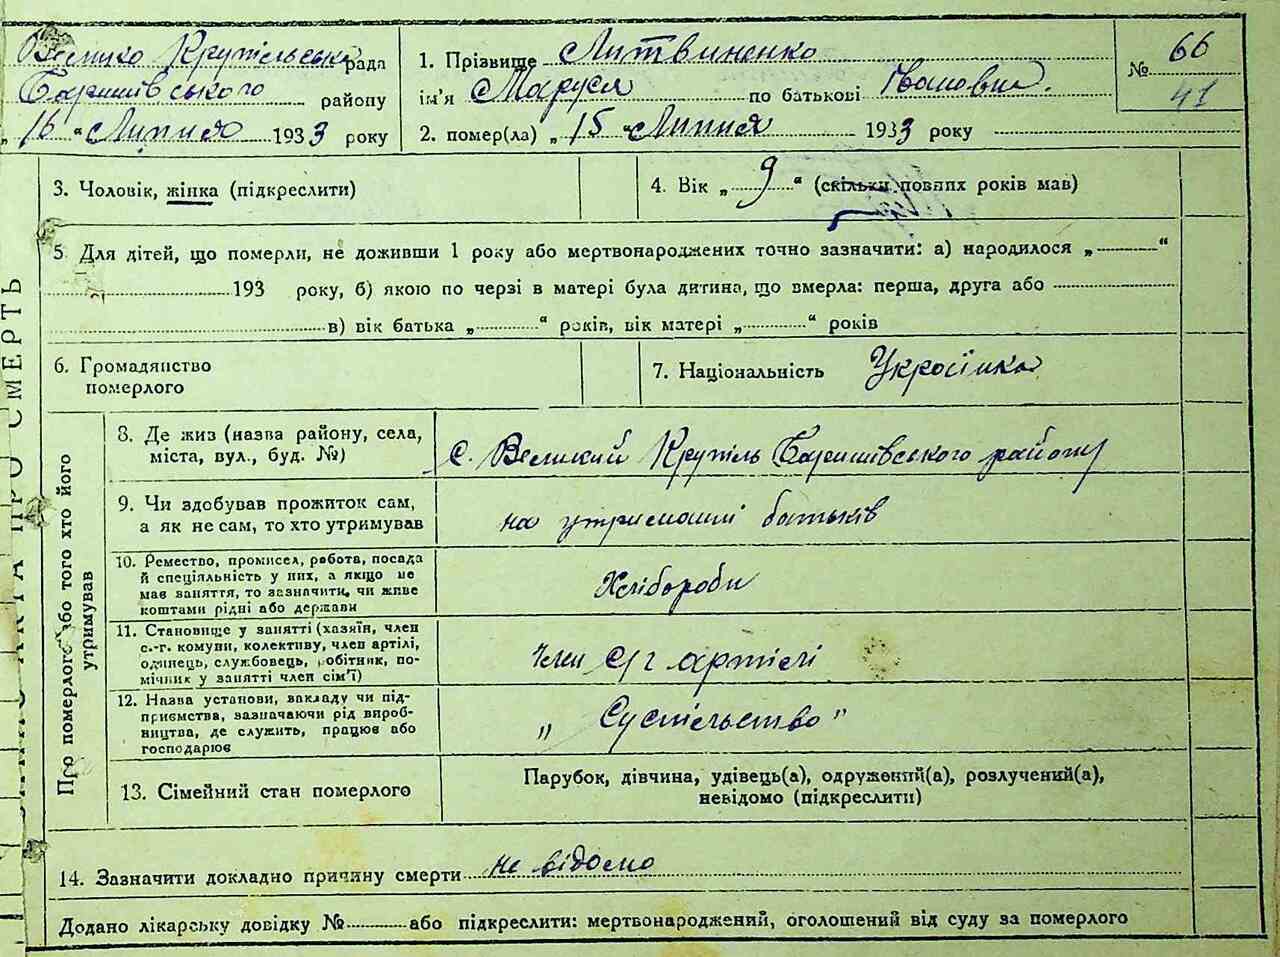 Велико Крупільська рада
Баришівського району
„16 “ Липня 1933 року
1. Прізвище Литвиненко
ім'я Маруся по батькові Івановна.
2. помер(ла) „15 “ Липня 1933 року
№ 66
41
3. Чоловік, жінка (підкреслити)
4. Вік „ 9 “ (скільки повних років мав)
5. Для дітей, що померли, не доживши 1 року або мертвонароджених точно зазначити: а) народилося „ “
193 року, б) якою по черзі в матері була дитина, що вмерла: перша, друга або
в) вік батька „ “ років, вік матері „ “ років
6. Громадянство
померлого
7. Національність Українка
ЗАПИС АКТА ПРО СМЕРТЬ
Про померлого або того хто його
утримував
8. Де жив (назва району, села,
міста, вул., буд. №)
с. Великий Крупіль Баришівського району
9. Чи здобував прожиток сам,
а як не сам, то хто утримував
на утриманні батьків
10. Ремество, промисел, робота, посада
й спеціяльність у них, а якщо не
має заняття, то зазначити, чи живе
коштами рідні або держави
Хлібороби
11. Становище у занятті (хазяїн, член
с.-г. комуни, колективу, член артілі,
одинець, службовець, робітник, по-
мічник у занятті член сім'ї)
Член С/г артілі
12. Назва установи, закладу чи під-
приємства, зазначаючи рід вироб-
ництва, де служить, працює або
господарює
„ Суспільство "
13. Сімейний стан померлого
Парубок, дівчина, удівець(а), одружений(а), розлучений(а),
невідомо (підкреслити)
14. Зазначити докладно причину смерти не відомо
Додано лікарську довідку № або підкреслити: мертвонароджений, оголошений від суду за померлого